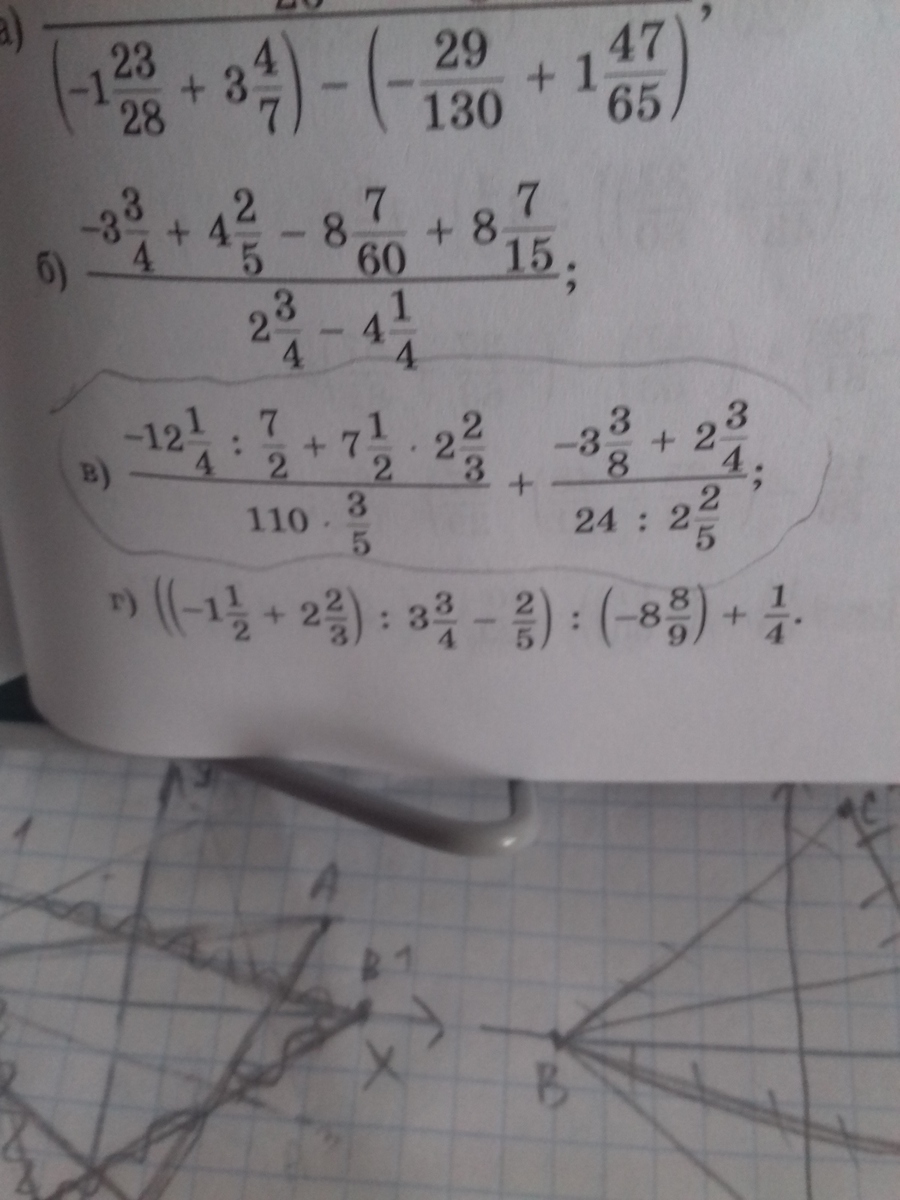 а)
(-1 23/28 + 3 4/7) - (-29/130 + 1 47/65),
б) (-3 3/4 + 4 2/5 - 8 7/60 + 8 7/15)/(2 3/4 - 4 1/4);
в) (-12 1/4 : 7/2 + 7 1/2 · 2 2/3)/(110 · 3/5) + (-3 3/8 + 2 3/4)/(24 : 2 2/5);
г) ((-1 1/2 + 2 2/3) : 3 3/4 - 2/5) : (-8 8/9) + 1/4.
1 y
A
B 1
X
C
B